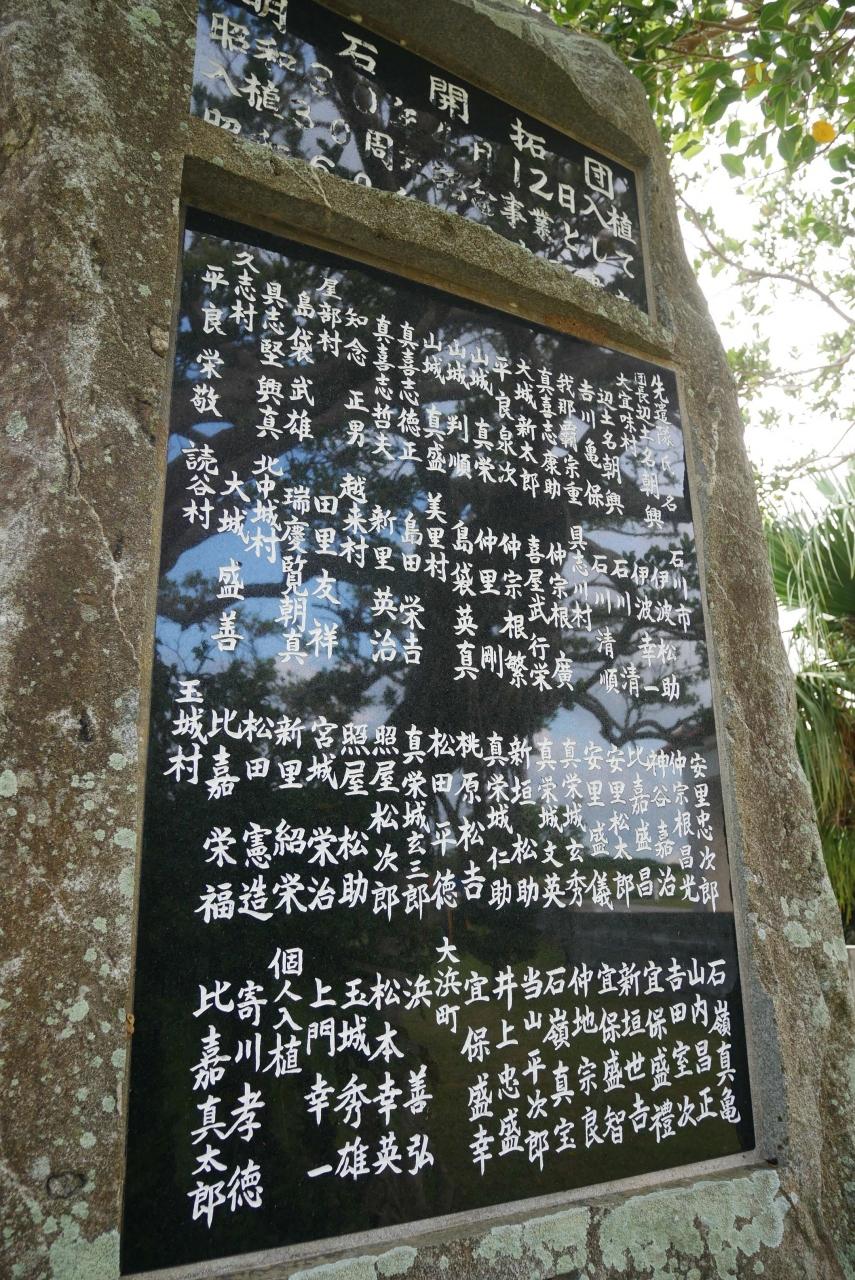 明石開拓団入植
昭和30年4月12日
入植30周年記念事業として
昭和60
先遣隊氏名
団長辺土名朝興
大宜味村
辺土名朝興
吉川亀保
我那覇宗重
真喜志康助
大城新太郎
平良泉次
山城真栄
山城判順
山城真盛
真喜志徳正
真喜志哲夫
知念正男
屋部村
島袋武雄
具志堅興真
久志村
平良栄敬
石川市
伊波松助
伊波幸一
石川清
石川清順
具志川村
仲宗根廣
喜屋武行栄
仲宗根繁
仲里剛
島袋英真
美里村
島田栄吉
新里英治
越来村
田里友祥
瑞慶覧朝真
北中城村
大城盛善
読谷村
安里忠次郎
仲宗根昌光
神谷嘉治
比嘉盛昌
安里松太郎
安里盛儀
真栄城玄秀
真栄城文英
新垣松助
真栄城仁助
桃原松吉
松田平徳
真栄城玄三郎
照屋松次郎
照屋松助
宮城栄治
新里紹栄
松田憲造
比嘉栄福
玉城村
石嶺真亀
山内昌正
吉田室次
宜保盛禮
新垣世吉
宜保盛智
仲地宗良
石嶺真宝
当山平次郎
井上忠盛
宜保盛幸
大浜町
浜善弘
松本幸英
玉城秀雄
上門幸一
個人入植
寄川孝徳
比嘉真太郎